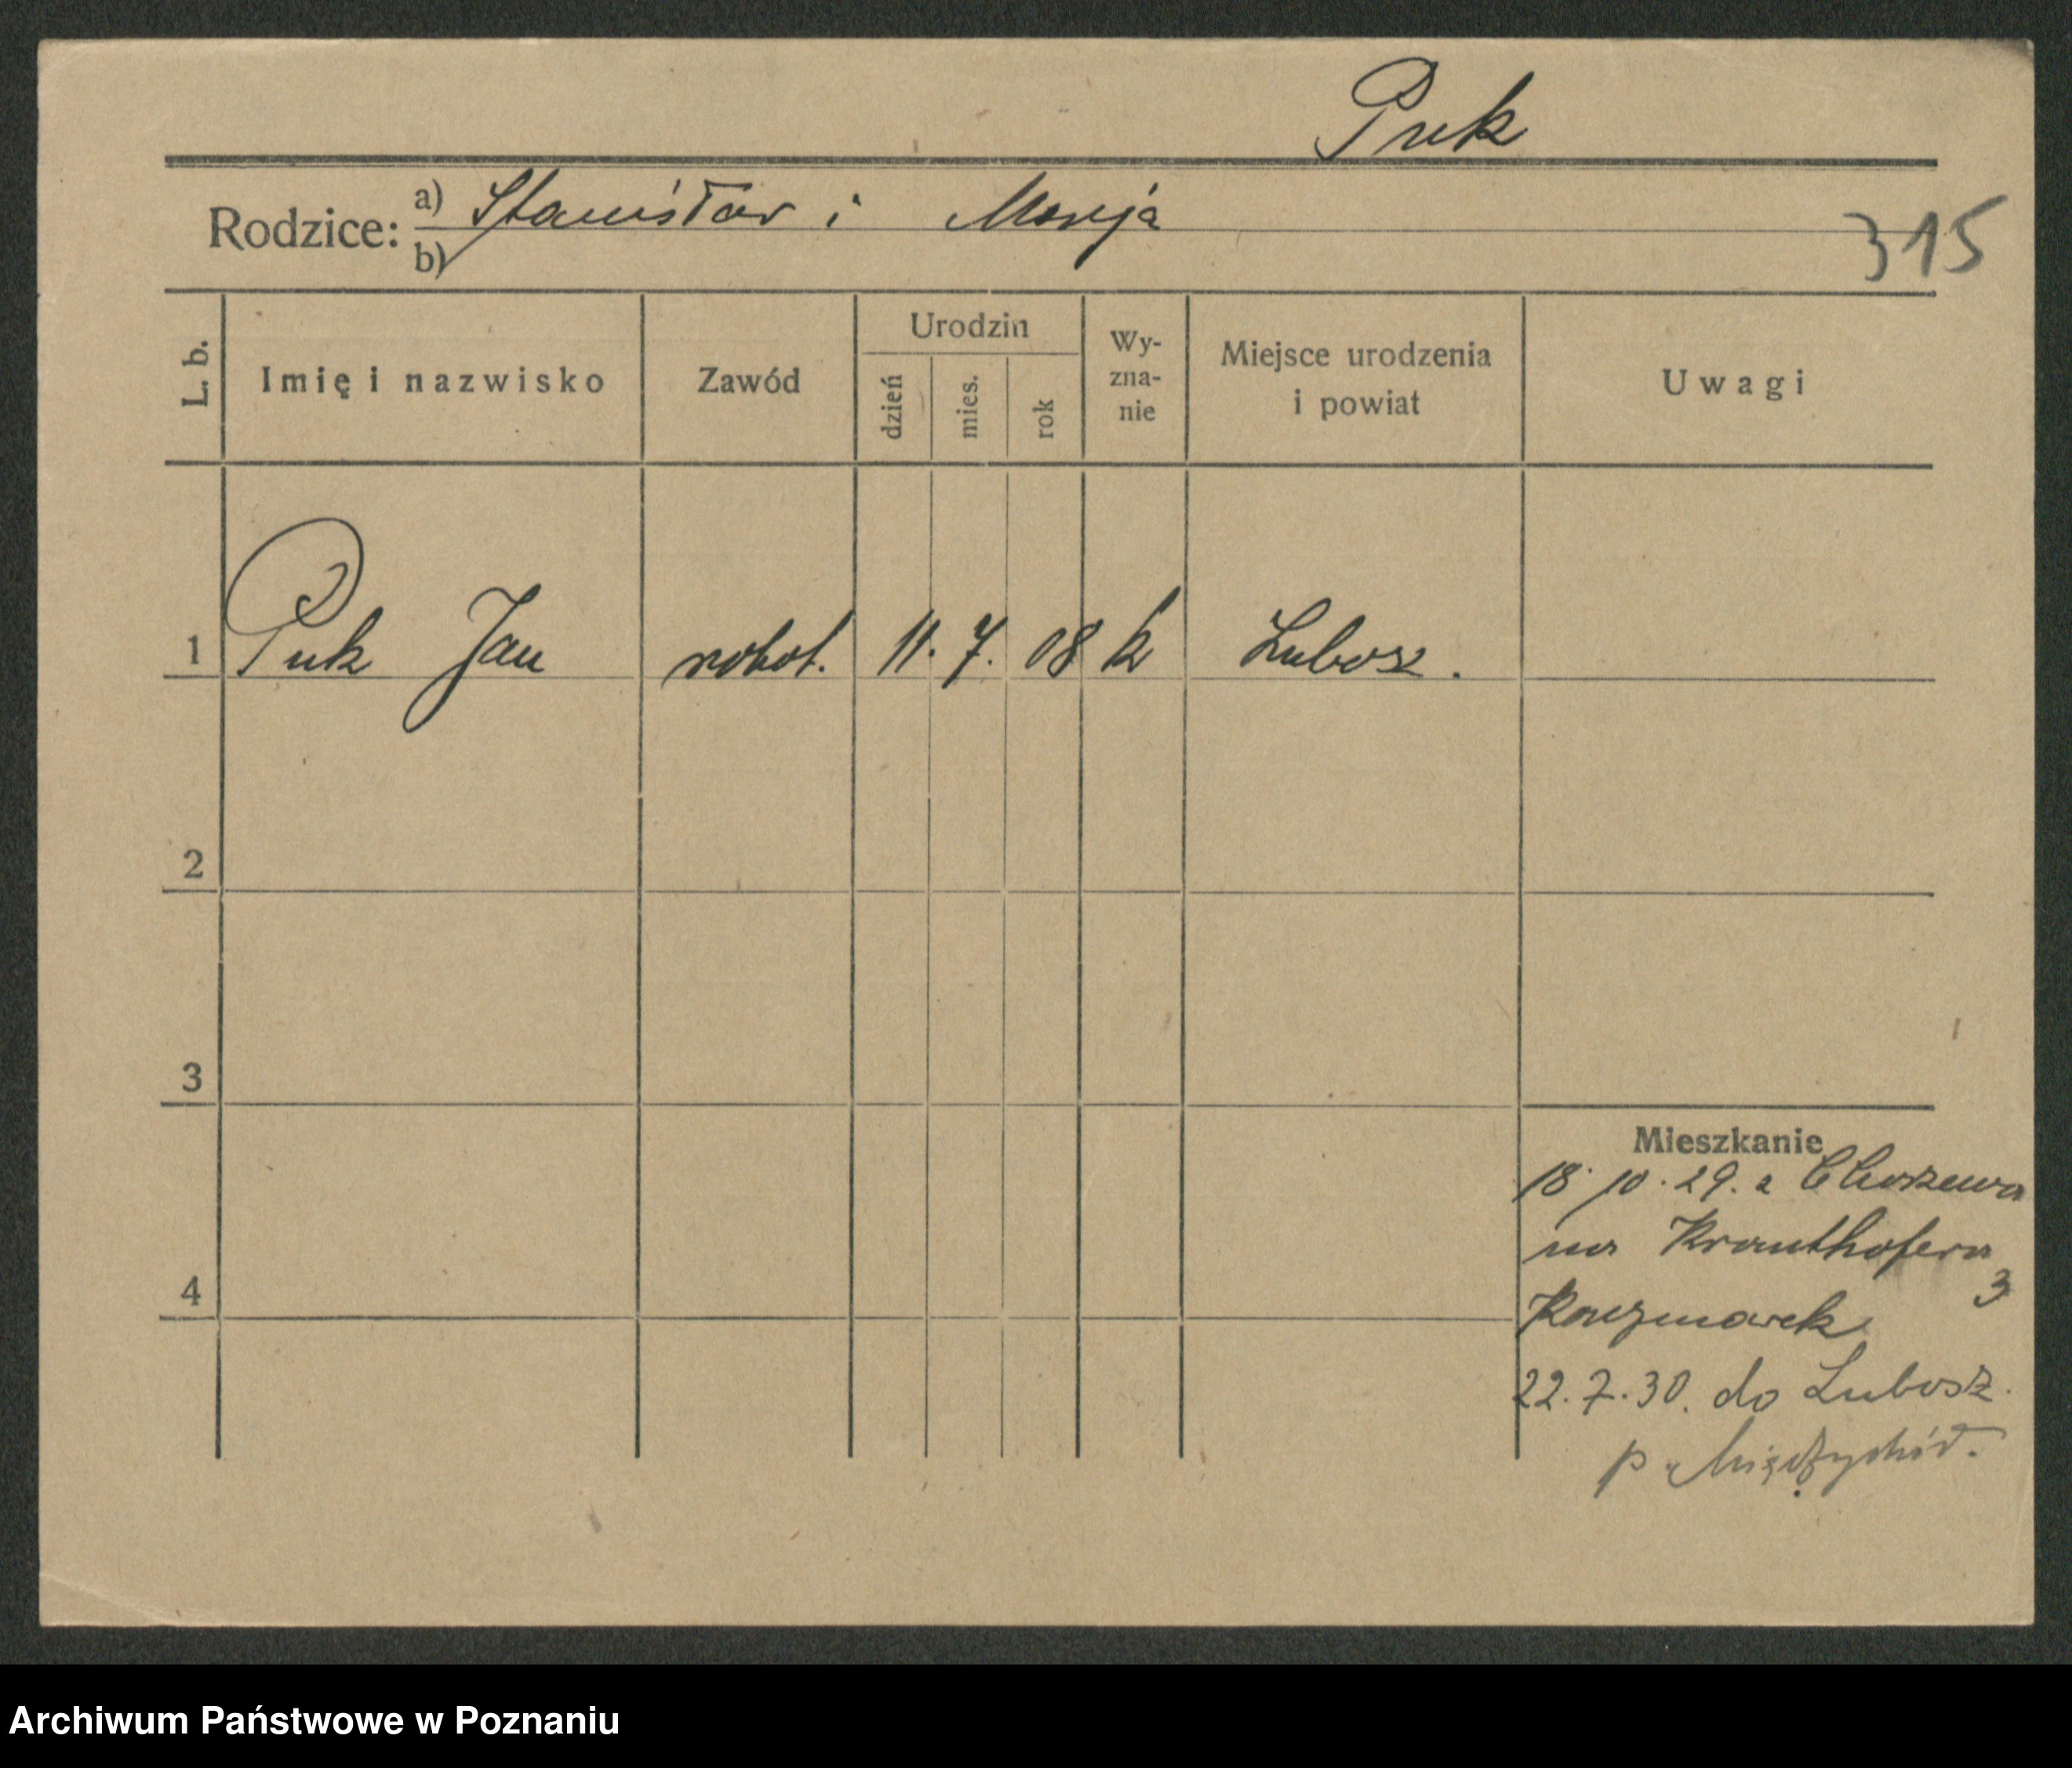 Puk
Rodzice: a) Stanisław i Maryja
b)
315
L. b.
Imię i nazwisko
Zawód
Urodzin
dzień
mies.
rok
Wy-
zna-
nie
Miejsce urodzenia
i powiat
Uwagi
1 Puk Jan robot. 11. 7. 08 k Lubosz.
2
3
4
Mieszkanie
18. 10. 29. z
na Krauthofera
3
Kaczmarek
22. 7. 30. do Lubosz.
p. Międzychód.
Archiwum Państwowe w Poznaniu